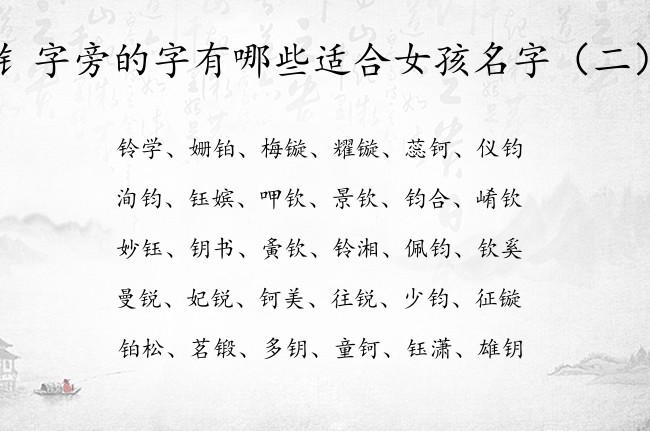 字旁的字有哪些适合女孩名字（二）
铃学、姗铂、梅镟、耀镟、蕊钶、仪钧
洵钧、钰嫔、呷钦、景钦、钧合、崤钦
妙钰、钥书、夤钦、铃湘、佩钧、钦奚
曼锐、妃锐、钶美、往锐、少钧、征镟
铂松、茗锻、多钥、童钶、钰潇、雄钥